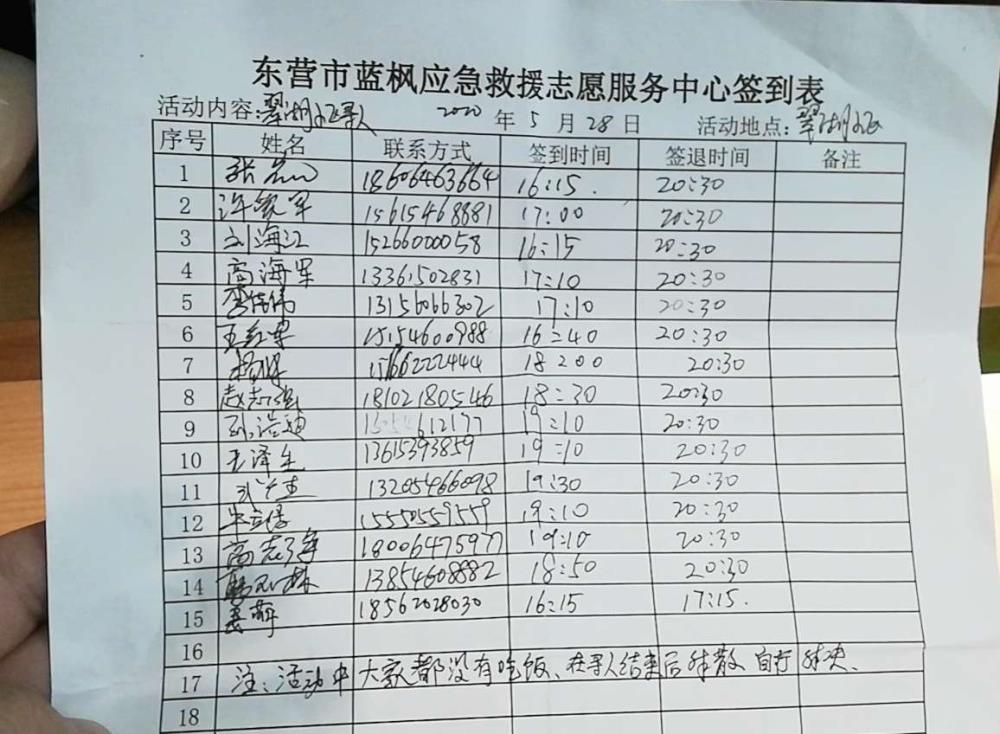 东营市蓝枫应急救援志愿服务中心签到表
活动内容:翠湖 寻人 2020 年 5 月 28 日 活动地点:翠湖
序号 姓名 联系方式 签到时间 签退时间 备注
1 张 18606463664 16:15. 20:30
2 许 军 15615468881 17:00 20:30
3 刘海江 15266000058 16:15 20:30
4 高海军 13361502831 17:10 20:30
5 李 伟 13156066302 17:10 20:30
6 王 军 15154600988 16:40 20:30
7 杨 15166222444 18:00 20:30
8 赵志强 18102180546 18:30 20:30
9 孙浩 612177 19:10 20:30
10 王泽生 13615393859 19:10 20:30
11 武 杰 13205466098 19:30 20:30
12 15550559559 19:10 20:30
13 高志 18006475977 19:10 20:30
14 13854608882 18:50 20:30
15 姜萌 18562028030 16:15 17:15.
16
17 注:活动中大家都没有吃饭、在寻人结束后解散、自行解决、
18